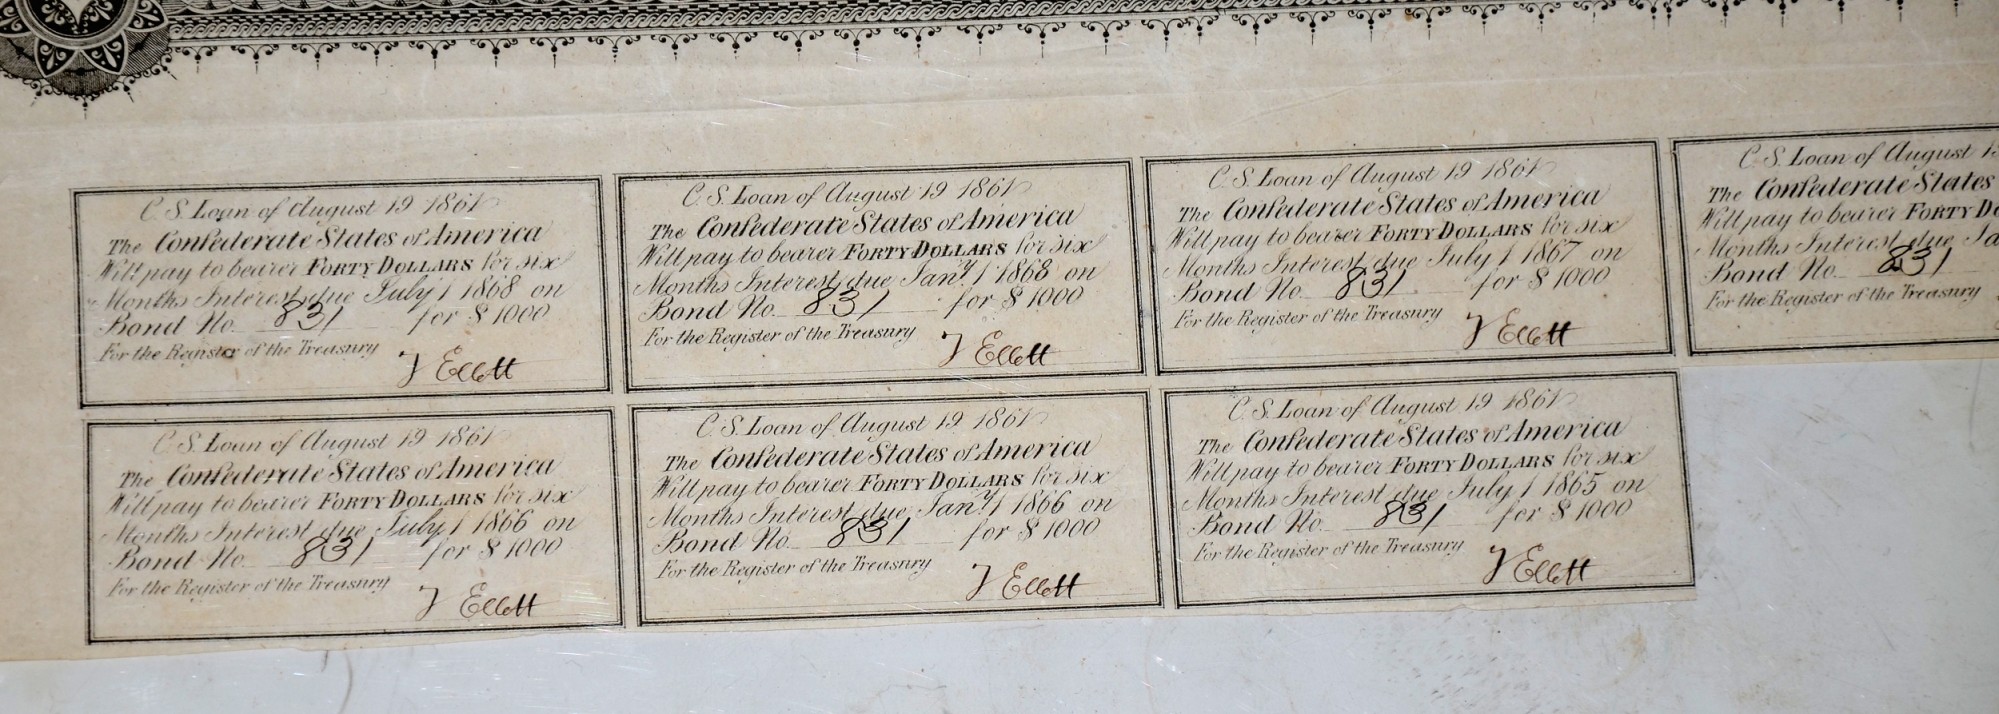 C. S. Loan of August 19 1861
The Confederate States of America
Will pay to bearer FORTY DOLLARS for six
Months Interest due July 1 1868 on
Bond No. 831 for $ 1000
For the Register of the Treasury
J Ellett
C. S. Loan of August 19 1861
The Confederate States of America
Will pay to bearer FORTY DOLLARS for six
Months Interest due Jany. 1 1868 on
Bond No. 831 for $ 1000
For the Register of the Treasury
J Ellett
C. S. Loan of August 19 1861
The Confederate States of America
Will pay to bearer FORTY DOLLARS for six
Months Interest due July 1 1867 on
Bond No. 831 for $ 1000
For the Register of the Treasury
J Ellett
C. S. Loan of August
The Confederate States
Will pay to bearer FORTY
Months Interest due
Bond No. 831
For the Register of the Treasury
C. S. Loan of August 19 1861
The Confederate States of America
Will pay to bearer FORTY DOLLARS for six
Months Interest due July 1 1866 on
Bond No. 831 for $ 1000
For the Register of the Treasury
J Ellett
C. S. Loan of August 19 1861
The Confederate States of America
Will pay to bearer FORTY DOLLARS for six
Months Interest due Jany. 1 1866 on
Bond No. 831 for $ 1000
For the Register of the Treasury
J Ellett
C. S. Loan of August 19 1861
The Confederate States of America
Will pay to bearer FORTY DOLLARS for six
Months Interest due July 1 1865 on
Bond No. 831 for $ 1000
For the Register of the Treasury
J Ellett